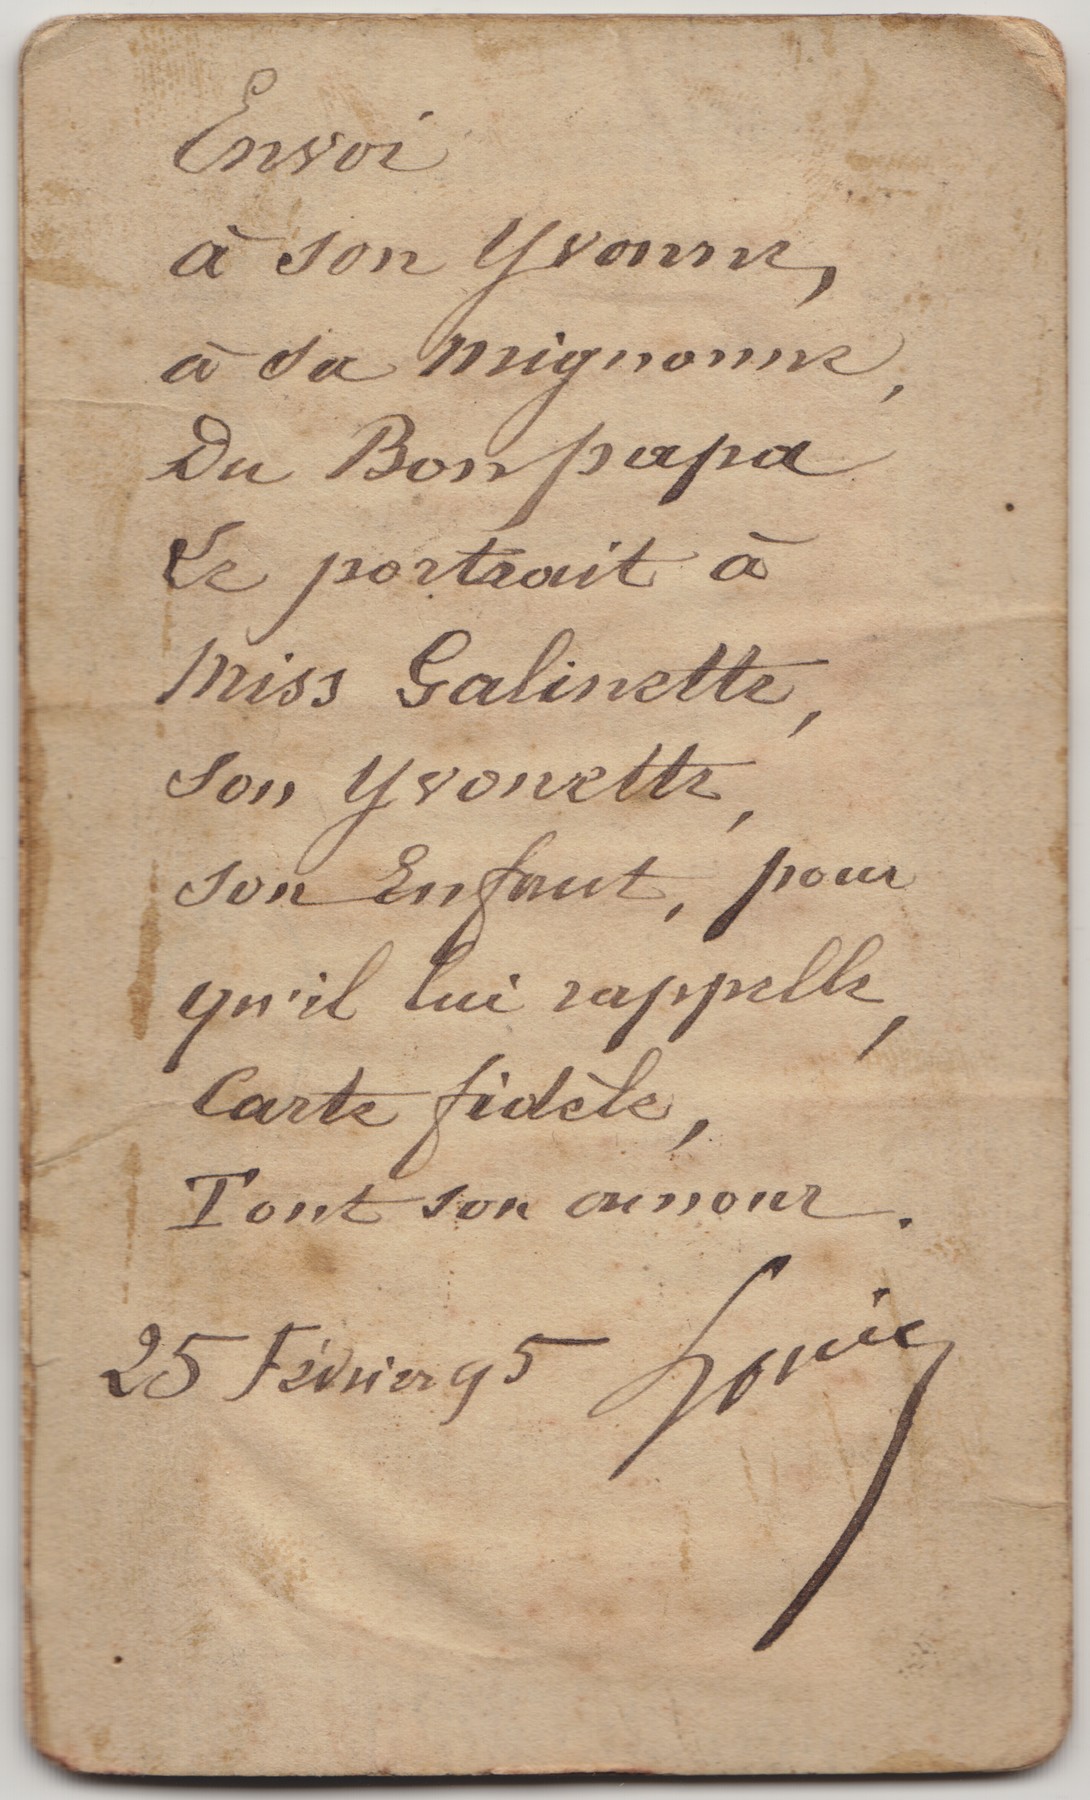 Envoi
à son Yvonne,
à sa mignonne,
Du Bon papa
Le portrait à
Miss Galinette,
son Yvonette,
son Enfant, pour
qu'il lui rappelle,
Carte fidèle,
Tout son amour.
25 Février 95 Louis